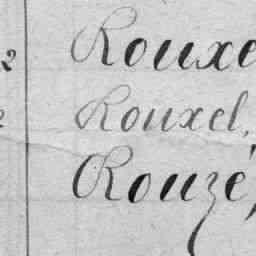 2 Rouxe
2 Rouxel,
Rouzé,